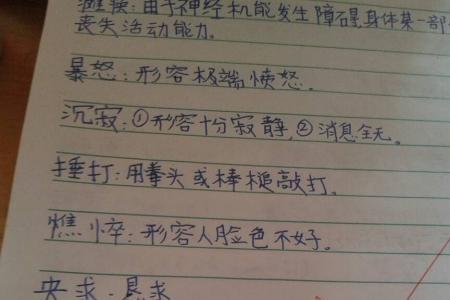 瘫痪:由于神经机能发生障碍,身体某一部
丧失活动能力。
暴怒:形容极端愤怒。
沉寂:①形容十分寂静,②消息全无。
捶打:用拳头或棒槌敲打。
憔悴:形容人脸色不好。
央求:恳求